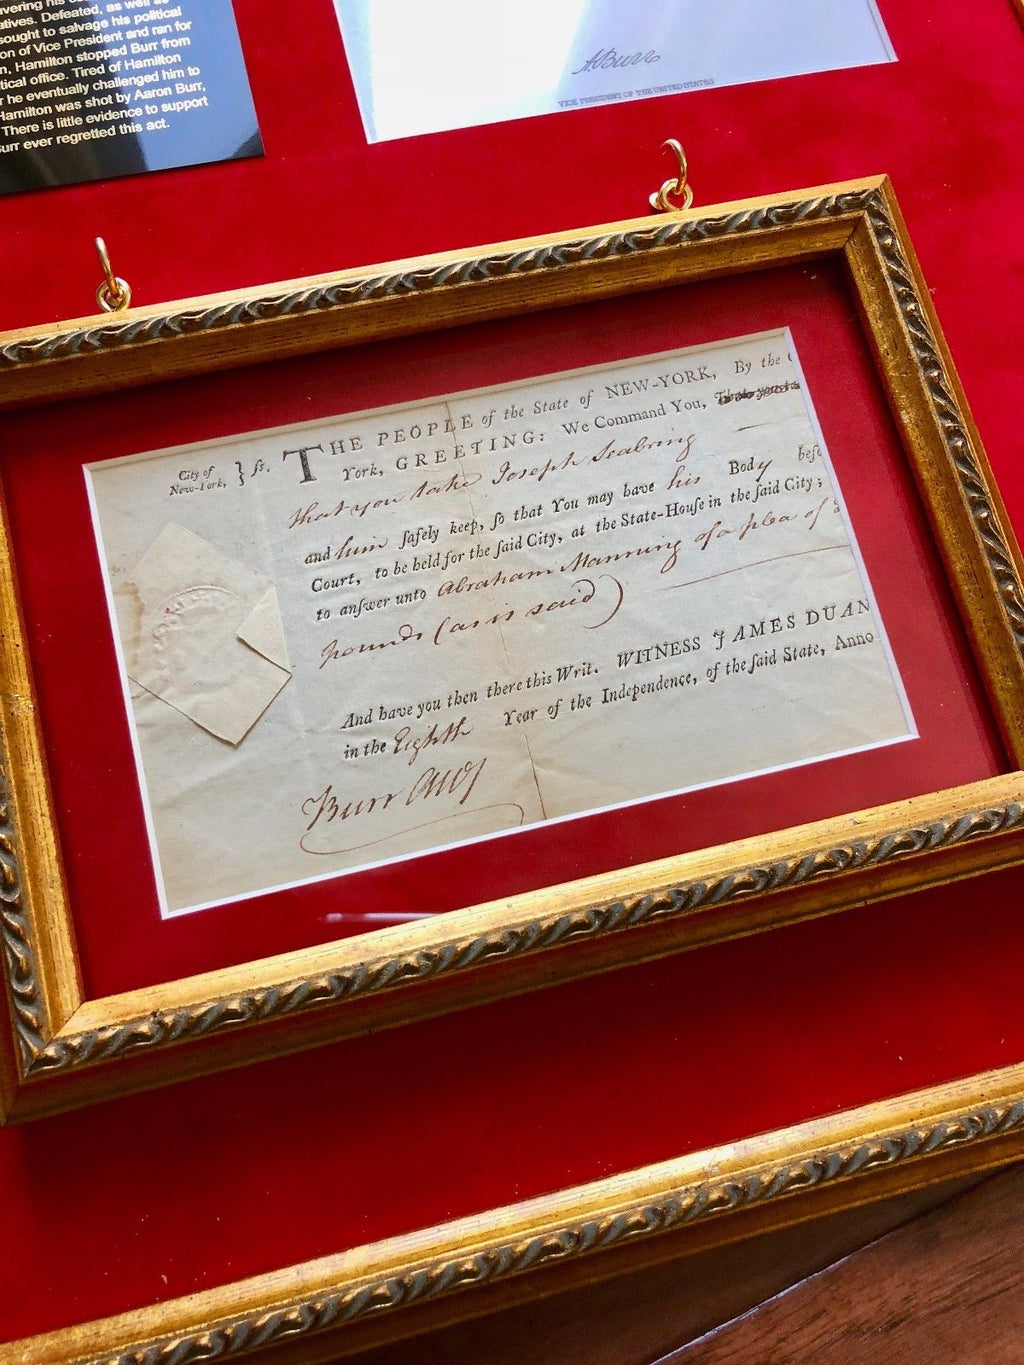 vering his
atives. Defeated, as well as
sought to salvage his political
on of Vice President and ran for
n, Hamilton stopped Burr from
tical office. Tired of Hamilton
r he eventually challenged him to
Hamilton was shot by Aaron Burr,
There is little evidence to support
urr ever regretted this act.
ABurr
VICE PRESIDENT OF THE UNITED STATES
City of
New-York, } ſs.
THE PEOPLE of the State of NEW-YORK, By the
York, GREETING: We Command You,
that you take Joseph Seabring
and him ſafely keep, ſo that You may have his Body befo
Court, to be held for the ſaid City, at the State-Houſe in the ſaid City;
to anſwer unto Abraham Manning of a plea of
pounds (as is said)
And have you then there this Writ. WITNESS JAMES DUAN
in the Eighth Year of the Independence, of the ſaid State, Anno
Burr Atty